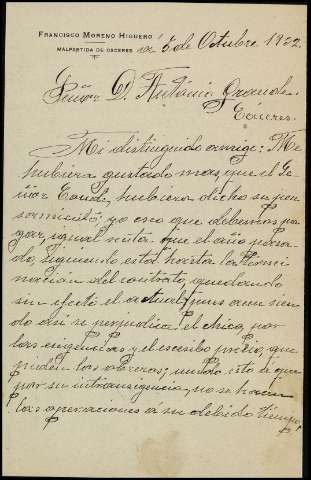 FRANCISCO MORENO HIGUERO
MALPARTIDA DE CACERES
5 de Octubre 1922.
Señor D. Antonio
Cáceres.
Mi distinguido amigo: Me
hubiera gustado mas, que el Se-
ñor Conde, hubiera dicho su pen-
samiento, yo creo que debemos pa-
gar, igual renta que el año pasa-
do, siguiendo esta hasta la termi-
nación del contrato, quedando
sin efecto el actual, pues aun sien-
do asi se perjudica el chico, por
las exigencias y el escesibo precio, que
piden los obreros; unido esto á que
por su intransigencia, no se hacen
las operaciones á su debido tiempo,